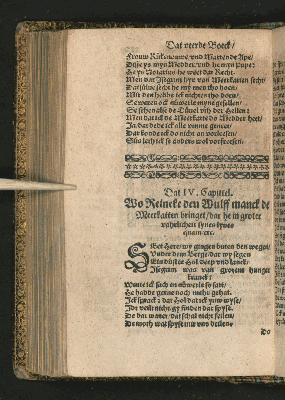 Dat veerde Boeck/
Frouw Rükenouwe/ vnd Marten de Ape/
Dysse ys myn Medder/ vnd he myn Pape:
He ys Notarius/ he weet dat Recht/
Men dat Isegrim hyr van Meerkatten secht/
Dat sülue secht he my men tho hoen/
Mit den hebbe ick nichtes tho doen/
Se weren ock nüwerle myne gesellen/
Se sehen alse de Düuel vth der Hellen:
Men dat ick de Meerkatte de Medder heet/
Ja/ dat dede ick alle vmme geneet/
Dar konde ick do nicht an vorleesen/
Süs leeth ick se anders wol vorfreesen.
Dat IV. Capittel.
Wo Reineke den Wulff manck de
Meerkatten bringet/ dar he in groter
vahrlicheit synes lyues
quam/ etc.
SEet Here/ wy gingen buten den wegen/
Vnder dem Berge/ dar wy segen
Ein düster Hol deep vnd lanck/
Isegrim was van grotem hunger
kranck:
Wente ick sach en nüwerle so sath/
He hadde gerne noch mehr gehat.
Ick sprack: dat Hol dat ick yuw wyse/
Idt veilt nicht/ gy finden dar spyse.
De dar waret/ dat schal nicht feilen/
De moth wat spyse mit vns deilen/
Do